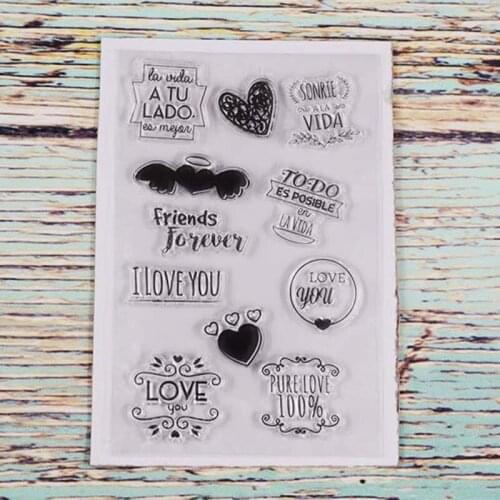 la vida
A TU
LADO.
es mejor
SONRIE
A LA
VIDA
TO-DO
ES POSIBLE
en
LA VIDA
Friends
Forever
I LOVE YOU
LOVE
you
LOVE
you
PURE LOVE
100%